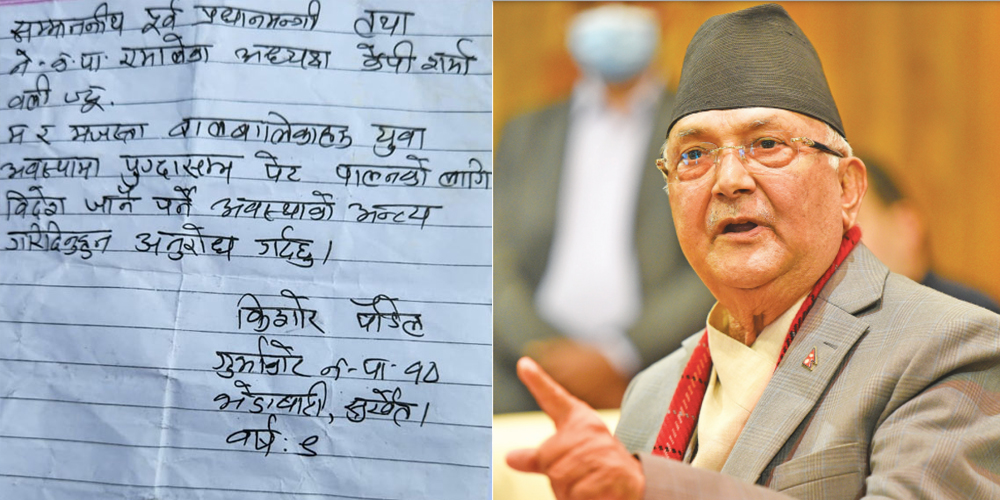 सम्माननीय पूर्व प्रधानमन्त्री तथा
ने.क.पा. एमालेका अध्यक्ष केपी शर्मा
वली ज्यू.
म र मजस्ता बालबालिकाहरु युवा
अवस्थामा पुग्दासम्म पेट पालनको लागि
विदेश जानै पर्ने अवस्थाको अन्त्य
गरिदिनुहुन अनुरोध गर्दछु।
किशोर पौडेल
गुर्भाकोट न.पा. १०
भेडाघारी, सुर्खेत।
वर्ष: ९